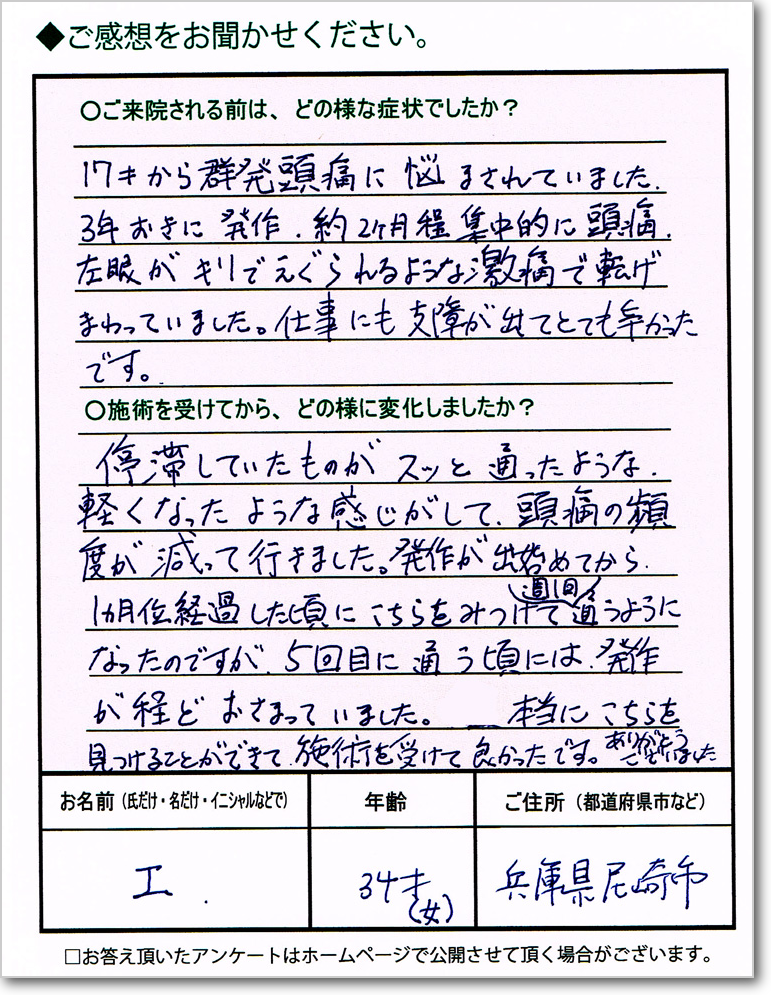 ◆ご感想をお聞かせください。
○ご来院される前は、どの様な症状でしたか？
17才から群発頭痛に悩まされていました.
3年おきに発作.約2ヶ月程集中的に頭痛.
左眼がキリでえぐられるような激痛で転げ
まわっていました。仕事にも支障が出てとても辛かった
です。
○施術を受けてから、どの様に変化しましたか？
停滞していたものがスッと通ったような.
軽くなったような感じがして、頭痛の頻
度が減って行きました。発作が出始めてから.
1ヵ月位経過した頃にこちらをみつけて週1回通うように
なったのですが、5回目に通う頃には、発作
が殆どおさまっていました。 本当にこちらを
見つけることができて、施術を受けて良かったです。ありがとうございました
お名前（氏だけ・名だけ・イニシャルなどで） 年齢 ご住所（都道府県市など）
工. 34才(女) 兵庫県尼崎市
□お答え頂いたアンケートはホームページで公開させて頂く場合がございます。